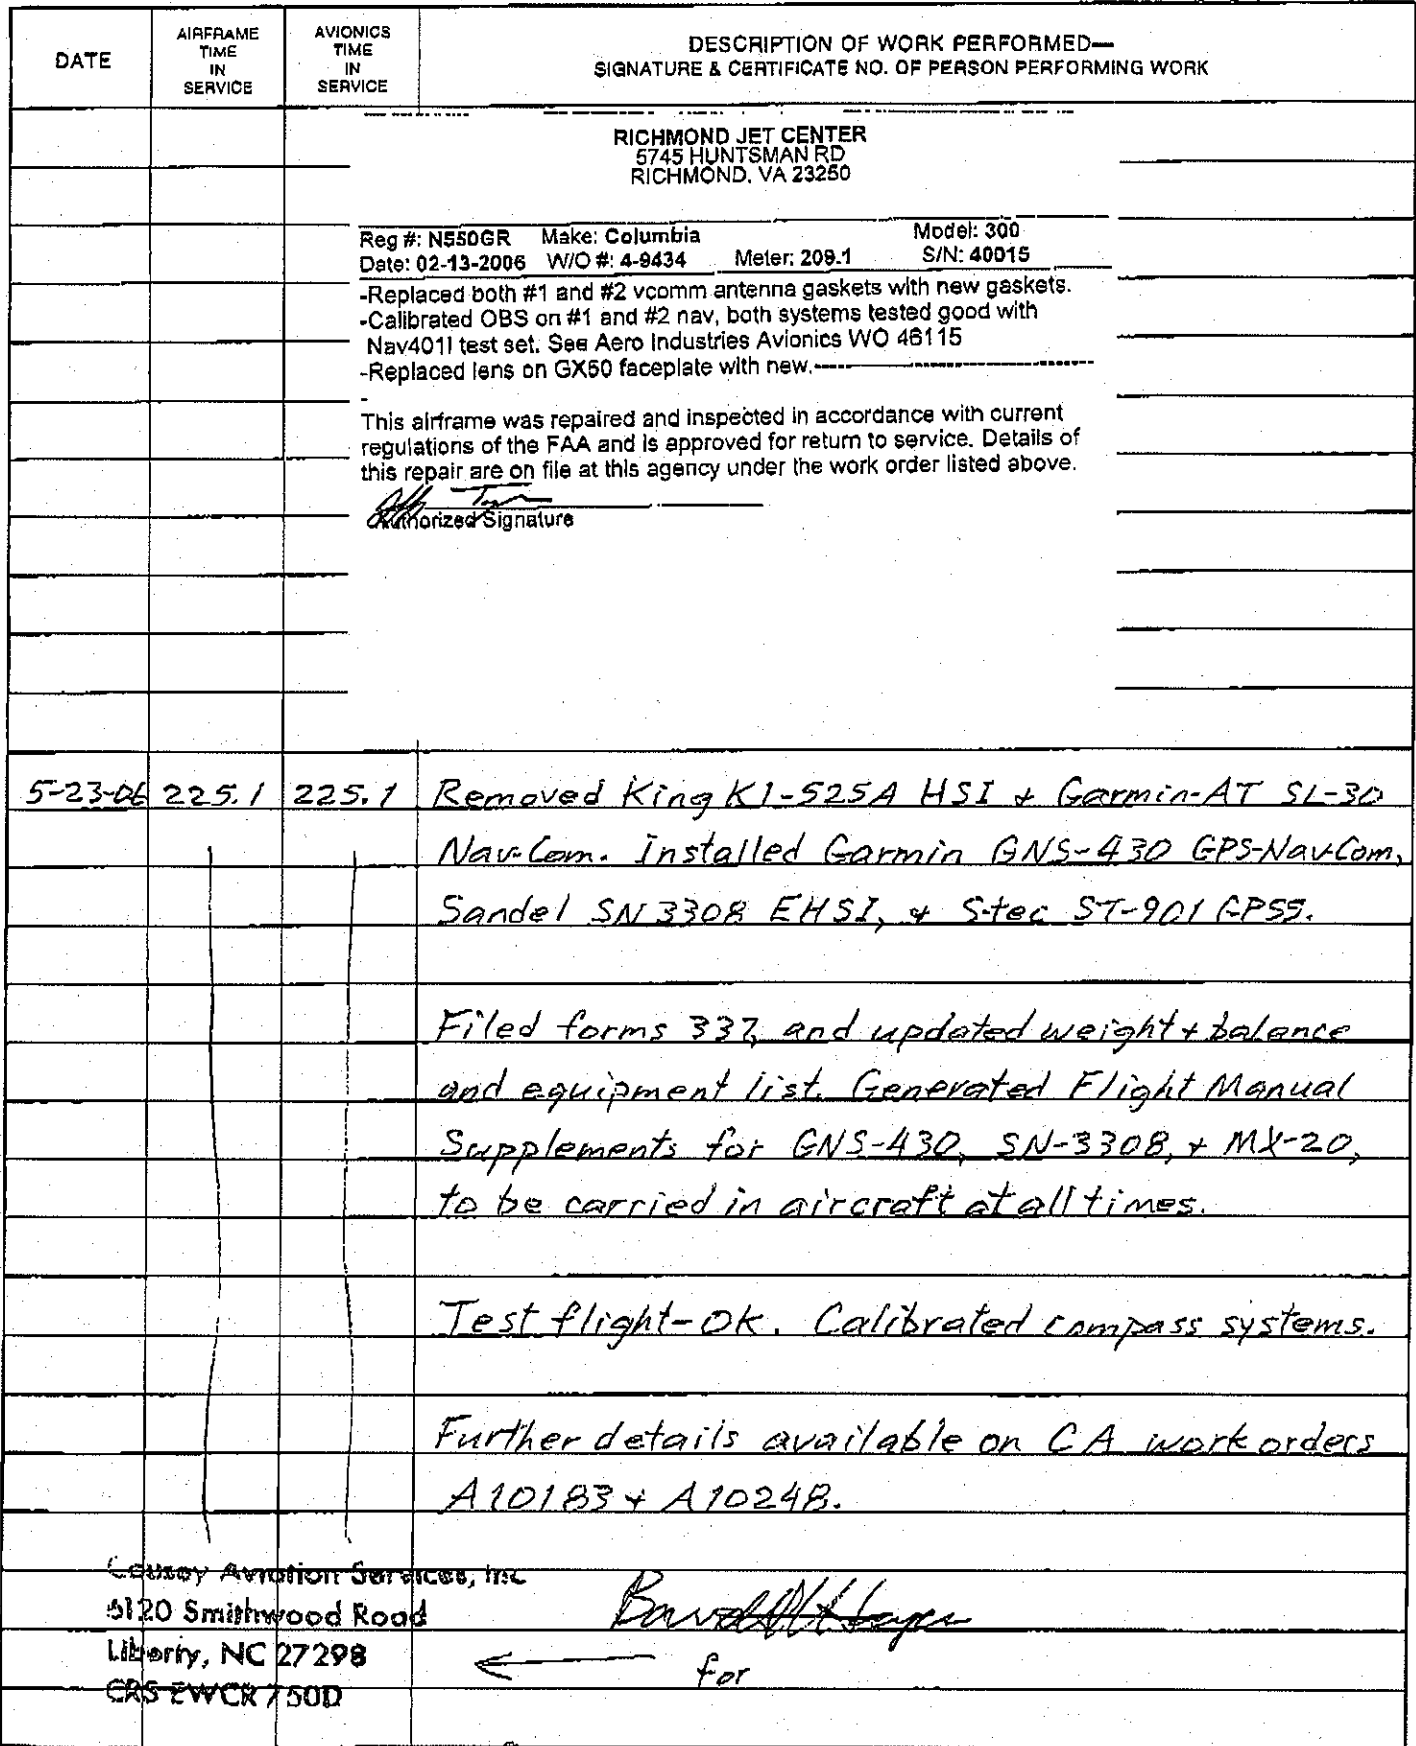 DATE
AIRFRAME TIME IN SERVICE
AVIONICS TIME IN SERVICE
DESCRIPTION OF WORK PERFORMED—
SIGNATURE & CERTIFICATE NO. OF PERSON PERFORMING WORK
RICHMOND JET CENTER
5745 HUNTSMAN RD
RICHMOND, VA 23250
Reg #: N550GR Make: Columbia Model: 300
Date: 02-13-2006 W/O #: 4-9434 Meter: 209.1 S/N: 40015
-Replaced both #1 and #2 vcomm antenna gaskets with new gaskets.
-Calibrated OBS on #1 and #2 nav, both systems tested good with
Nav401l test set. See Aero Industries Avionics WO 46115
-Replaced lens on GX60 faceplate with new.
-
This airframe was repaired and inspected in accordance with current
regulations of the FAA and is approved for return to service. Details of
this repair are on file at this agency under the work order listed above.
Authorized Signature
5-23-06 225.1 225.1 Removed King KI-525A HSI & Garmin-AT SL-30
Nav-Com. Installed Garmin GNS-430 GPS-Nav-Com,
Sandel SN3308 EHSI, & S-tec ST-901 GPSS.
Filed forms 337, and updated weight + balance
and equipment list. Generated Flight Manual
Supplements for GNS-430, SN-3308, + MX-20,
to be carried in aircraft at all times.
Test flight-OK. Calibrated compass systems.
Further details available on CA work orders
A10183 + A10248.
Causey Aviation Services, Inc
5120 Smithwood Road
Liberty, NC 27298
CRS EWCR750D
for